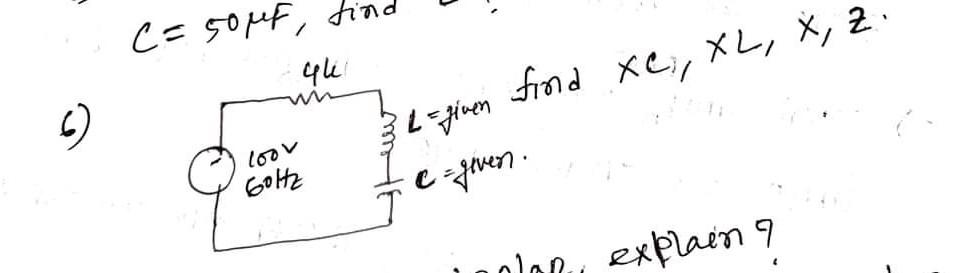 C = 50μF, find
6)
4k
100V
60Hz
L = given
C = given.
find XC, XL, X, Z.
explain?